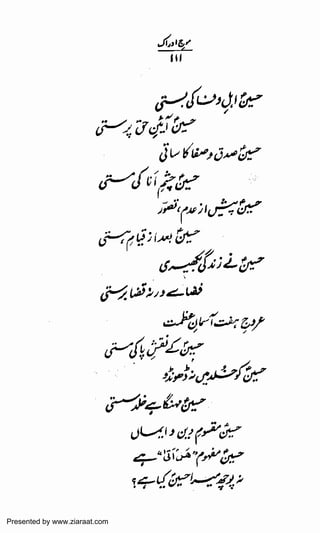 موجِ ادراک
۱۱۱
حسینؑ اہلِ وفا کی بستی
حسینؑ آئینِ حق پرستی
حسینؑ صدق و صفا کا ساقی
حسینؑ چشمِ اَنا کی مستی
حسینؑ پیش از عدم، تصور
حسینؑ بعد از قیامِ ہستی
حسینؑ نے زندگی بکھیری
فضا سے ورنہ قضا برستی
عروجِ ہفت آسمانِ عظمت
حسینؑ کے نقشِ پا کی مستی
حسینؑ کو خُلد میں نہ ڈھونڈو
حسینؑ مہنگا ہے خُلد سستی
حسینؑ مقسومِ دین و ایماں
حسینؑ مفہومِ "ھَل اَتیٰ" ہے
نہ پوچھ میرا حسینؑ کیا ہے؟
Presented by www.ziaraat.com